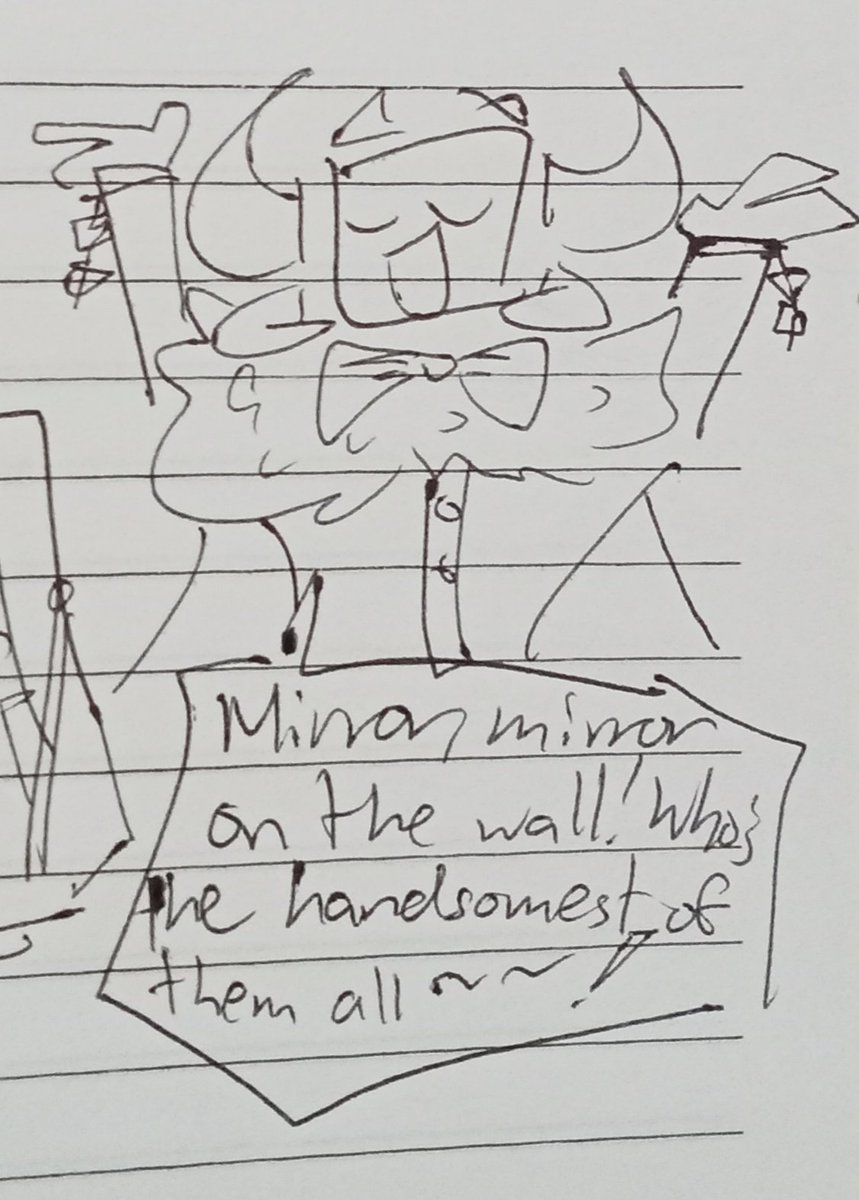 Mirror mirror
on the wall! Who's
the handsomest of
them all ~~!